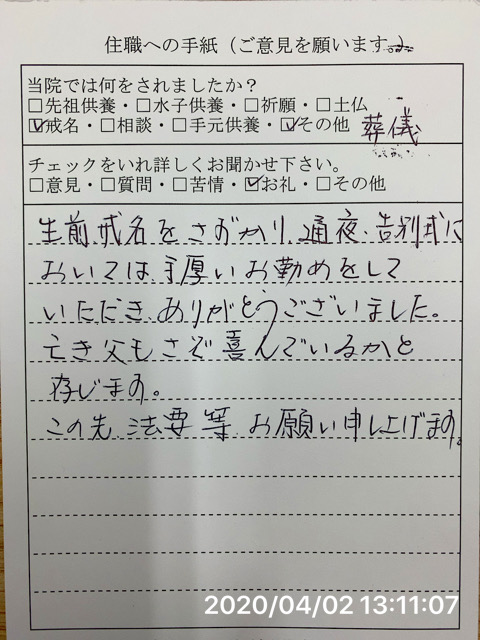 住職への手紙（ご意見を願います。）
当院では何をされましたか？
□先祖供養・□水子供養・□祈願・□土仏
☑戒名・□相談・□手元供養・☑その他 葬儀
チェックをいれ詳しくお聞かせ下さい。
□意見・□質問・□苦情・☑お礼・□その他
生前、戒名をさずかり、通夜、告別式に
おいては、手厚いお勤めをして
いただき、ありがとうございました。
亡き父もさぞ喜んでいるかと
存じます。
この先、法要等、お願い申し上げます。
2020/04/02 13:11:07